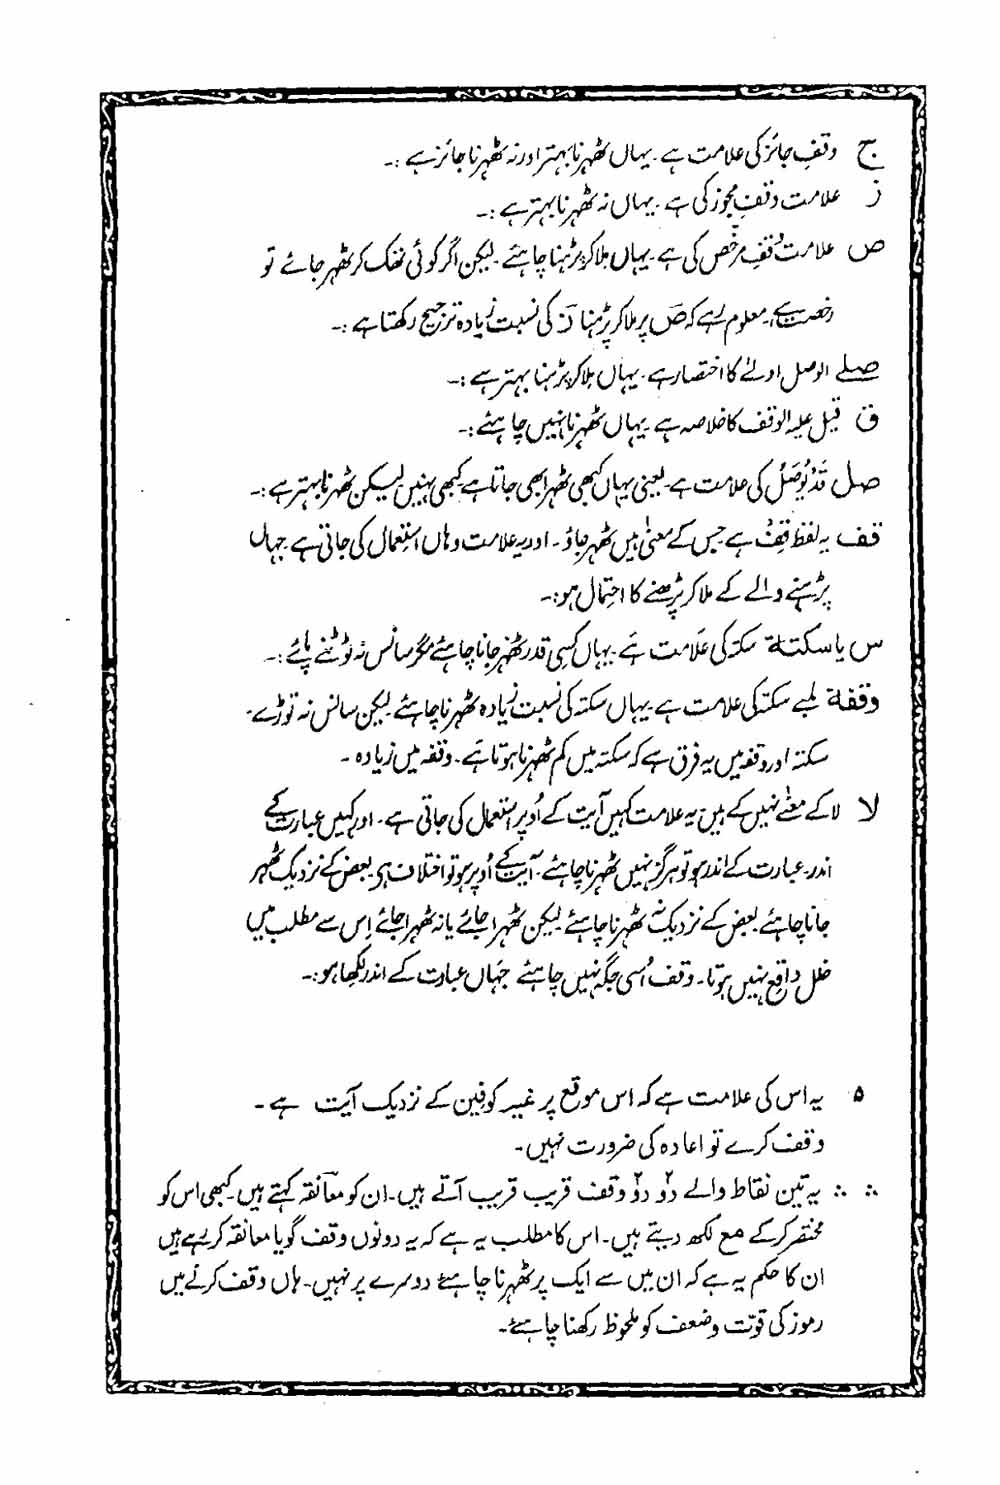 ج وقفِ جائز کی علامت ہے۔ یہاں ٹھہرنا بہتر اور نہ ٹھہرنا جائز ہے :۔
ز علامت وقفِ مجوز کی ہے۔ یہاں نہ ٹھہرنا بہتر ہے :۔
ص علامت وقفِ مرخص کی ہے۔ یہاں ملا کر پڑہنا چاہئے۔ لیکن اگر کوئی تھک کر ٹھہر جائے تو
رخصت ہے۔ معلوم رہے کہ صؔ پر ملا کر پڑہنا زؔ کی نسبت زیادہ ترجیح رکھتا ہے :۔
صلے الوصل اولےٰ کا اختصار ہے۔ یہاں ملا کر پڑہنا بہتر ہے :۔
ق قیل علیہ الوقف کا خلاصہ ہے۔ یہاں ٹھہرنا نہیں چاہئے :۔
صل قَدْ یُوصَلُ کی علامت ہے۔ یعنی یہاں کبھی ٹھہرا بھی جاتا ہے کبھی نہیں لیکن ٹھہرنا بہتر ہے :۔
قف یہ لفظ قِفْ ہے جس کے معنیٰ ہیں ٹھہر جاؤ۔ اور یہ علامت وہاں استعمال کی جاتی ہے جہاں
پڑہنے والے کے ملا کر پڑھنے کا احتمال ہو :۔
س یا سکتة سکتہ کی علامت ہے۔ یہاں کسی قدر ٹھہر جانا چاہئے مگر سانس نہ ٹوٹنے پائے :۔
وقفة لمبے سکتہ کی علامت ہے۔ یہاں سکتہ کی نسبت زیادہ ٹھہرنا چاہئے۔ لیکن سانس نہ توڑے۔
سکتہ اور وقفہ میں یہ فرق ہے کہ سکتہ میں کم ٹھہرنا ہوتا ہے۔ وقفہ میں زیادہ۔
لا لا کے معنے نہیں کے ہیں یہ علامت کہیں آیت کے اُوپر استعمال کی جاتی ہے۔ اور کہیں عبارت کے
اندر۔ عبارت کے اندر ہو تو ہرگز نہیں ٹھہرنا چاہئے۔ آیت کے اُوپر ہو تو اختلاف ہی بعض کے نزدیک ٹھہر
جانا چاہئے بعض کے نزدیک نہ ٹھہرنا چاہئے لیکن ٹھہرا جائے یا نہ ٹھہرا جائے اِس سے مطلب میں
خلل واقع نہیں ہوتا۔ وقف اُسی جگہ نہیں چاہئے جہاں عبارت کے اندر لکھا ہو :۔
۵ یہ اس کی علامت ہے کہ اس موقع پر غیر کوفیین کے نزدیک آیت ہے۔
وقف کرے تو اعادہ کی ضرورت نہیں۔
؞ ؞ یہ تین نقاط والے دو دو وقف قریب قریب آتے ہیں۔ ان کو معانقہ کہتے ہیں۔ کبھی اس کو
مختصر کر کے مع لکھ دیتے ہیں۔ اس کا مطلب یہ ہے کہ یہ دونوں وقف گویا معانقہ کر رہے ہیں
ان کا حکم یہ ہے کہ ان میں سے ایک پر ٹھہرنا چاہئے دوسرے پر نہیں۔ ہاں وقف کرنے میں
رموز کی قوّت وضعف کو ملحوظ رکھنا چاہئے۔